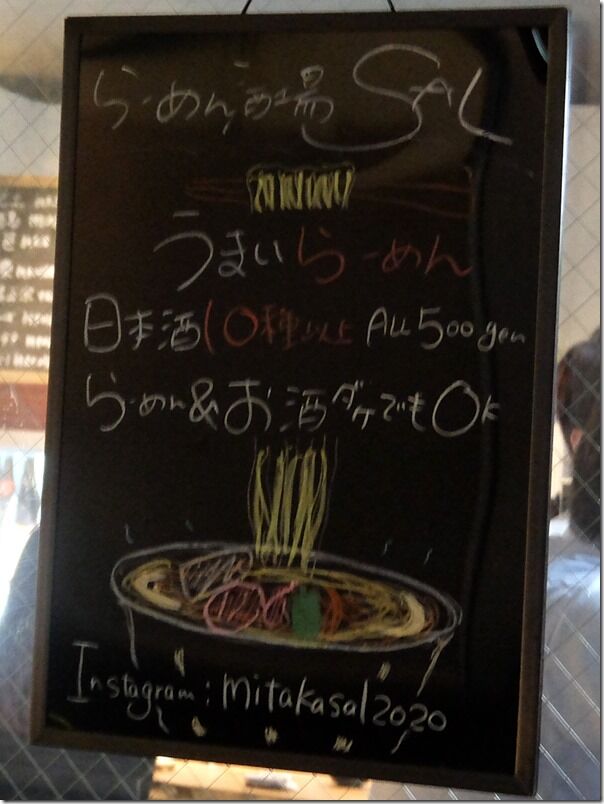 らーめん酒場 SAL
うまいらーめん
日本酒10種以上 ALL 500yen
らーめん&お酒ダケでもOK
Instagram: mitakasal2020